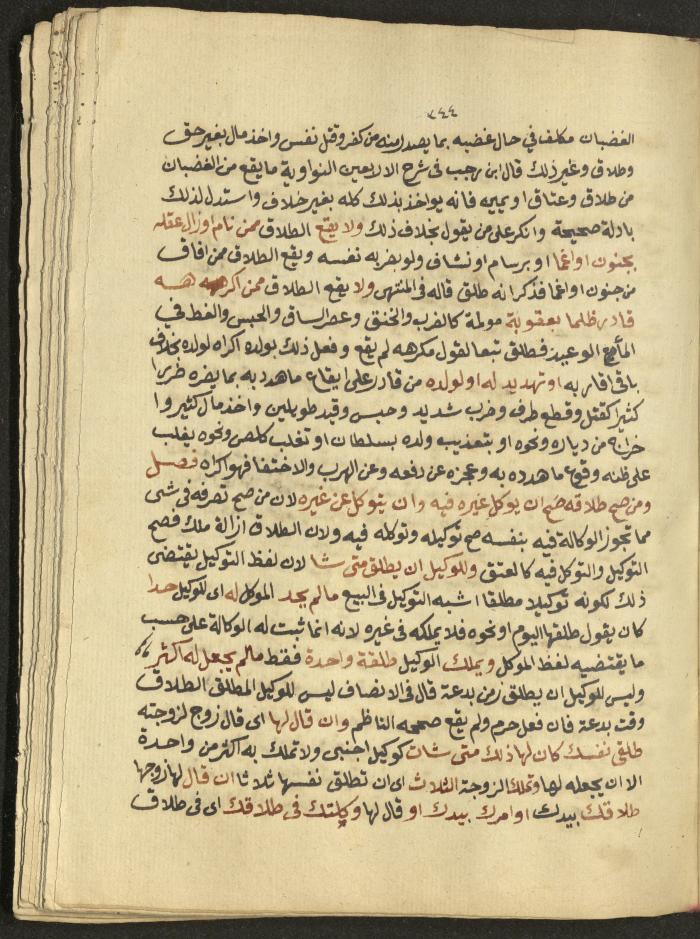 ٣٤٤
الغضبان مكلف في حال غضبه بما يصدر منه من كفر وقتل نفس واخذ مال بغير حق
وطلاق وغير ذلك قال ابن رجب في شرح الاربعين النواوية ما يقع من الغضبان
من طلاق وعتاق او يمين فانه يواخذ بذلك كله بغير خلاف واستدل لذلك
بادلة صحيحة وانكر على من يقول بخلاف ذلك ولا يقع الطلاق ممن نام او زال عقله
بجنون او اغما او برسام او نشاف ولو بضربه نفسه ويقع الطلاق ممن افاق
من جنون او اغما فذكر انه طلق قاله في المنتهى ولا يقع الطلاق ممن اكرهه
قادر ظلما بعقوبة مولمة كالضرب والخنق وعصر الساق والحبس والغط في
الما مع الوعيد فطلق تبعا لقول مكرهه لم يقع وفعل ذلك بولده اكراه لولده بخلاف
باقي اقاربه او تهديد له او لولده من قادر على ايقاع ما هدد به بما يضره ضررا
كثيرا كقتل وقطع طرف وضرب شديد وحبس وقيد طويلين واخذ مال كثير وا
خراج من دياره ونحوه او بتعذيب ولده بسلطان او تغلب كلص ونحوه يغلب
على ظنه وقوع ما هدده به وعجزه عن دفعه وعن الهرب والاختفا فهو اكراه فصل
ومن صح طلاقه صح ان يوكل غيره فيه وان يتوكل عن غيره لان من صح تصرفه في شي
مما تجوز الوكالة فيه بنفسه صح توكيله وتوكله فيه ولان الطلاق ازالة ملك فصح
التوكيل والتوكل فيه كالعتق وللوكيل ان يطلق متى شا لان لفظ التوكيل يقتضي
ذلك لكونه توكيلا مطلقا اشبه التوكيل في البيع مالم يحد الموكل له اي للوكيل حدا
كان يقول طلقها اليوم او نحوه فلا يملكه في غيره لانه انما ثبت له الوكالة على حسب
ما يقتضيه لفظ الموكل ويملك الوكيل طلقة واحدة فقط مالم يجعل له اكثر
وليس للوكيل ان يطلق زمن بدعة قال في الانصاف ليس للوكيل المطلق الطلاق
وقت بدعة فان فعل حرم ولم يقع صححه الناظم وان قال لها اي قال زوج لزوجته
طلقي نفسك كان لها ذلك متى شات كوكيل اجنبي ولا تملك به اكثر من واحدة
الا ان يجعله لها وتملك الزوجة الثلاث اي ان تطلق نفسها ثلاثا ان قال لها زوجها
طلاقك بيدك او امرك بيدك او قال لها وكلتك في طلاقك اي في طلاق